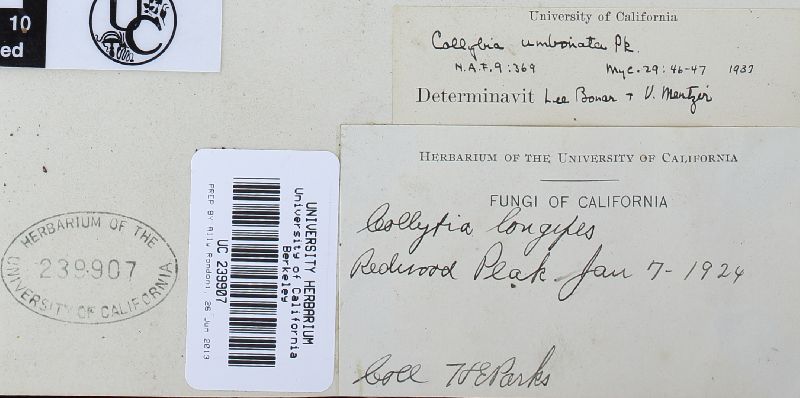 10
ed
UC
University of California
Collybia umbonata Pk.
N.A.F. 9:369 Myc. 29:46-47 1937
Determinavit Lee Bonar + V. Mentzer
HERBARIUM OF THE UNIVERSITY OF CALIFORNIA
FUNGI OF CALIFORNIA
Collybia longipes
Redwood Peak Jan 7-1924
Coll H E Parks
HERBARIUM OF THE
239907
UNIVERSITY OF CALIFORNIA
UNIVERSITY HERBARIUM
University of California
Berkeley
UC 239907
PREP BY Ally Rondoni 26 Jun 2013